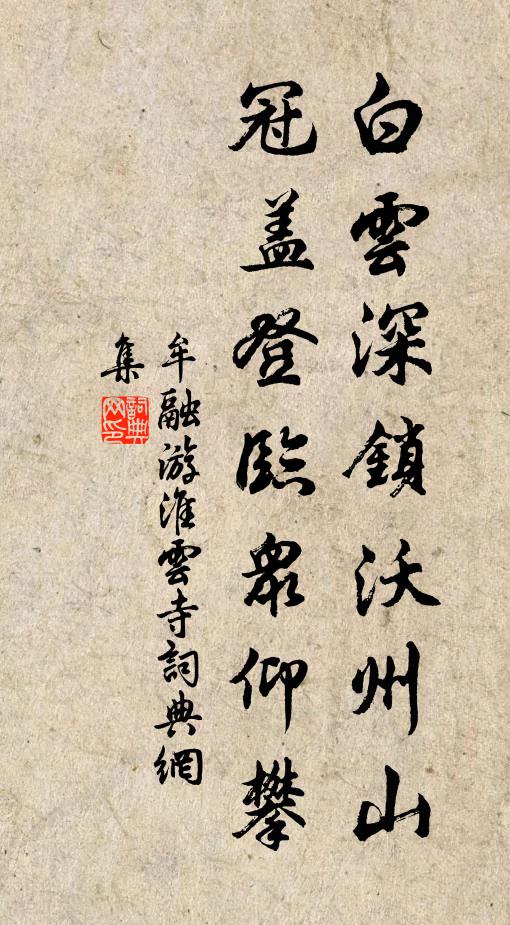 白雲深鎖沃州山
冠盖登臨衆仰攀
牟融游淮雲寺詞典網
集
詞典网印